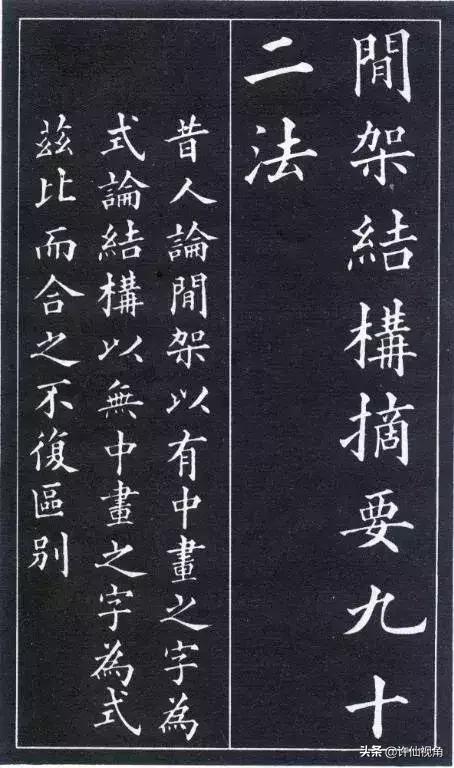 間架結構摘要九十
二法
昔人論間架以有中畫之字為
式論結構以無中畫之字為式
茲比而合之不復區别
头条 @许仙视角